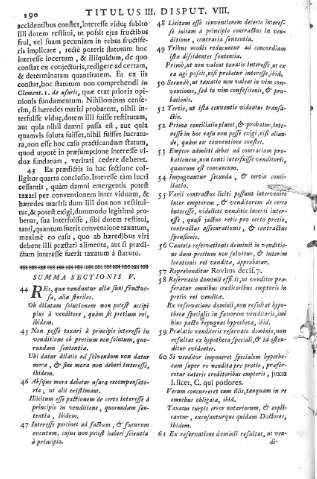 190 TITULUS III. DISPUT. VIII.
accidentibus constet, interesse vidua subito
illi dotem restitui, ut possit ejus fructibus
frui, vel suam pecuniam in rebus fructife-
ris implicare, recte poterit statutum hoc
interesse incertum, & illiquidum, de quo
constat ex conjecturis, redigere ad certam,
& determinatam quantitatem. Et ex iis
constat, hoc statutum non comprehendi in
Clement. 1. de usuris, que erat priori opi-
nionis fundamentum. Nihilominus cense-
rem, si haeredes mariti probarent, nihil in-
terfuisse viduae, dotem illi fuisse restitutam,
aut quia nihil damni passa est, aut quia
quamvis soluta fuisset, nihil fuisset lucratu-
ra, non esse hoc casu practicandum statutum,
quod utpote in praesumptione interesse vi-
duae fundatum, veritati cedere deberet.
43 Ex praedictis in hac sectione col-
ligitur quarta conclusio. Interesse tam lucri
cessantis, quam damni emergentis potest
taxari per conventionem inter viduam, &
haeredes mariti; dum illi dos non restitui-
tur, & potest exigi, dummodo legitime pro-
betur, sua interfuisse dotem sibi restitui,
tanti, quantum fuerit conventione taxatum,
maxime eo casu, quo ab haeredibus viri
debent illi praestari alimenta, aut si praedi-
ctum interesse fuerit taxatum à statuto.
SUMMA SECTIONIS V.
44 REs, que vanduntur alia sunt fructuo-
sa, alia steriles.
Ob dilatam solutionem non potest accipi
plus à venditore, quàm sit pretium rei,
ibidem.
45 Non posse taxari à principio interesse in
venditione ob pretium non solutum, quo-
rundam sententia.
Ubi datur dilatio ad solvendum non datur
mora, & sine mora non debari interesse,
ibidem.
46 Absque mora dubatur usura recompensato-
ria, ut alii existimant.
Illicitum esse pactionem de certo interesse à
principio in venditione, quorundam sen-
tentia, ibidem.
47 Interesse pertinet ad factum, & futurum
eventum, cujus non potest haberi scientia
à principio.
48 Licitam esse conventionem deterto interes-
se initam à principio contractus in ven-
ditione, contraria sententia.
49 Tribus modis reducuntur ad concordiam
iste dissidentes sententiae.
Primò, ut non valeat taxatio interesse, ut ex
ea agi possit, nisi probatur interesse, ibid.
50 Secundò, ut taxatio non valeat ex sola con-
ventione, sed in vim confessionis, & pro-
bationis.
51 Tertiò, ut ista conventio videatur transa-
ctio.
52 Prima conciliatio placet, & probatur, inte-
resse in hoc casu non posse exigi, nisi aliun-
de, quàm ex conventione constet.
53 Emptor admitti debet ad contrarium pro-
bationem, non tanti interfuisse venditori,
quantum est conventum.
54 Impugnantur secunda, & tertia conci-
liatio.
55 Varii contractus liciti possunt intervenire
inter emptorem, & venditorem de certo
interesse, videlicet venditio incerti inter-
esse, quasi jactus retis pro certo pretio,
contractus assecurationis, & contractus
sponsionis.
56 Cautela reservationis dominii in venditio-
ne dum pretium non solvitur, & interim
locationis rei vendita, approbatur.
57 Reprehenditur Rovitus decis. 7.
58 Reservatio dominii est si it, ut venditor prae-
feratur omnibus creditoribus emptoris in
pretio rei vendita.
Ex reservatione dominii, non resultat hypo-
theca specialis in favorem venditoris, nisi
huic pacto jungatur hypotheca, ibid.
59 Praelatio venditoris reservatio dominium, non
resultat ex hypotheca speciali, & id osten-
ditur evidenter.
60 Si venditor imponeret specialem hypothe-
cam super re vendita pro pretio, praefer-
retur tateris creditoribus emptoris, juxta
l. licet, C. qui potiores.
Verum concurreret cum illis, tanquam in re
omnibus obligata, ibid.
Taxatur turpis error notariorum, & expli-
cantur, excusanturque quidam Doctores,
ibidem.
61 Ex reservatione dominii resultat, ut ven-
di-